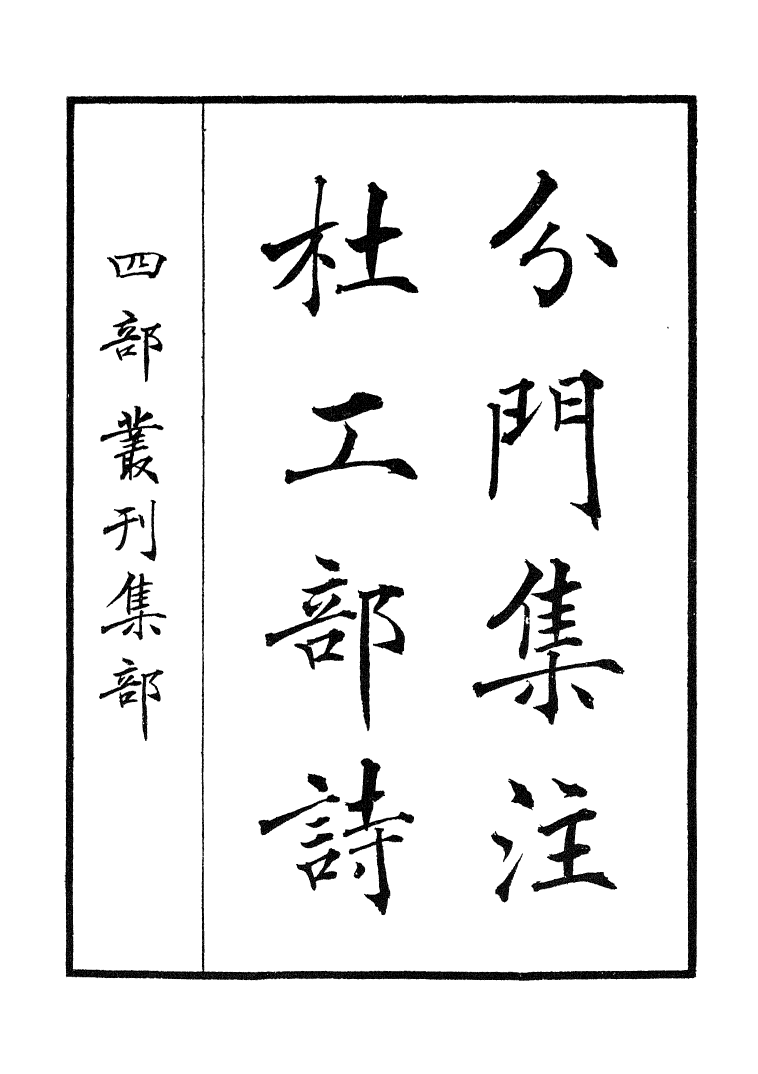 分門集注
杜工部詩
四部叢刊集部